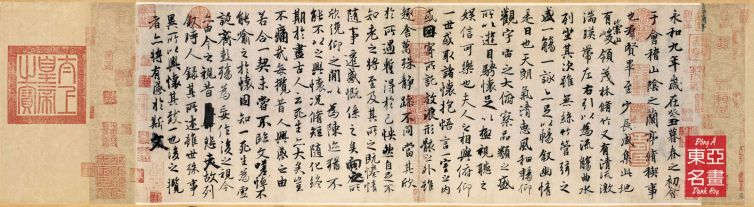 永和九年歲在癸丑暮春之初會
于會稽山陰之蘭亭脩稧事
也群賢畢至少長咸集此地
有崇山峻領茂林脩竹又有清流激
湍暎帶左右引以為流觴曲水
列坐其次雖無絲竹管弦之
盛一觴一詠亦足以暢敘幽情
是日也天朗氣清惠風和暢仰
觀宇宙之大俯察品類之盛
所以遊目騁懷足以極視聽之
娛信可樂也夫人之相與俯仰
一世或取諸懷抱悟言一室之內
或因寄所託放浪形骸之外雖
趣舍萬殊靜躁不同當其欣
於所遇暫得於己怏然自足不
知老之將至及其所之既惓情
隨事遷感慨係之矣向之所
欣俛仰之閒以為陳迹猶不
能不以之興懷況脩短隨化終
期於盡古人云死生亦大矣豈
不痛哉每攬昔人興感之由
若合一契未嘗不臨文嗟悼不
能喻之於懷固知一死生為虛
誕齊彭殤為妄作後之視今
亦由今之視昔悲夫故列
敘時人錄其所述雖世殊事
異所以興懷其致一也後之攬
者亦將有感於斯文
太上皇帝之寶
Đông Á
東亞
名畫
Danh Họa